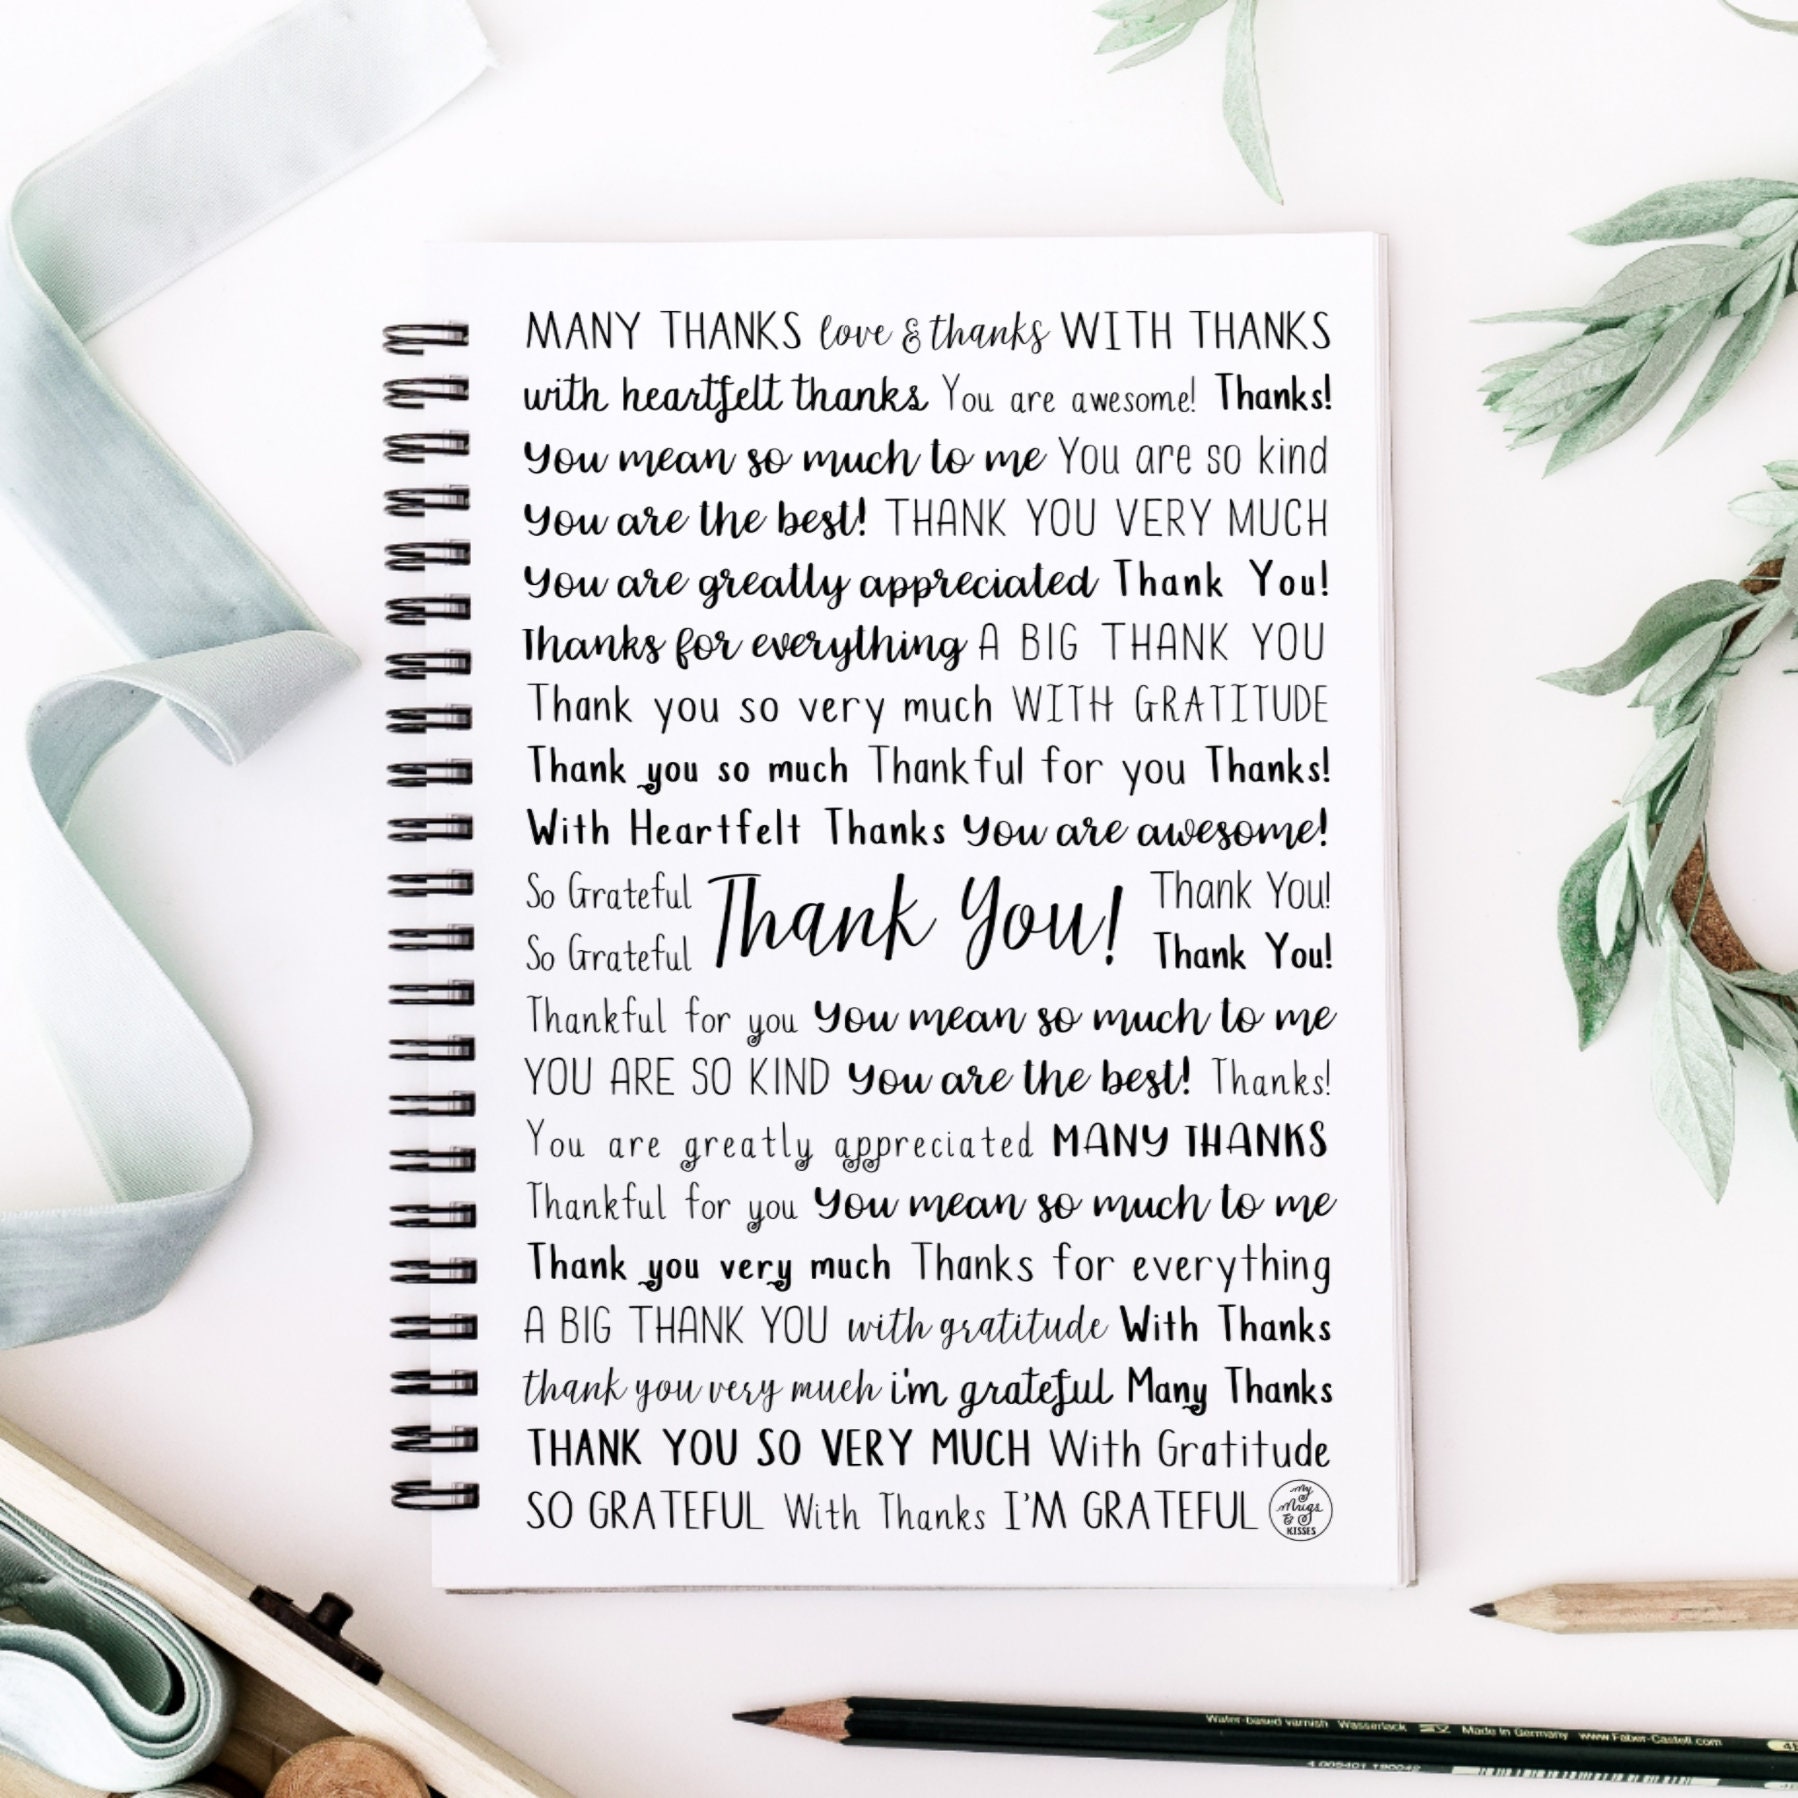 MANY THANKS love & thanks WITH THANKS
with heartfelt thanks You are awesome! Thanks!
You mean so much to me You are so kind
You are the best! THANK YOU VERY MUCH
You are greatly appreciated Thank You!
Thanks for everything A BIG THANK YOU
Thank you so very much WITH GRATITUDE
Thank you so much Thankful for you Thanks!
With Heartfelt Thanks You are awesome!
So Grateful Thank You! Thank You!
So Grateful Thank You!
Thankful for you You mean so much to me
YOU ARE SO KIND You are the best! Thanks!
You are greatly appreciated MANY THANKS
Thankful for you You mean so much to me
Thank you very much Thanks for everything
A BIG THANK YOU with gratitude With Thanks
thank you very much i'm grateful Many Thanks
THANK YOU SO VERY MUCH With Gratitude
SO GRATEFUL With Thanks I'M GRATEFUL
My
Mugs
&
KISSES
Water-based varnish Wasserlack Made in Germany www.Faber-Castell.com
4 005401 190042